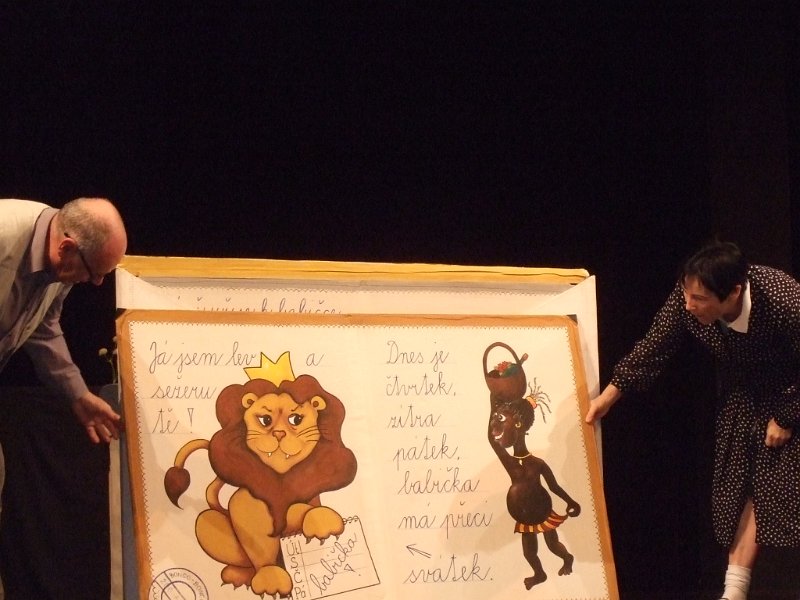 Já jsem lev a
sežeru
tě!
Dnes je
čtvrtek,
zítra
pátek,
babička
má přeci
svátek.
babička!